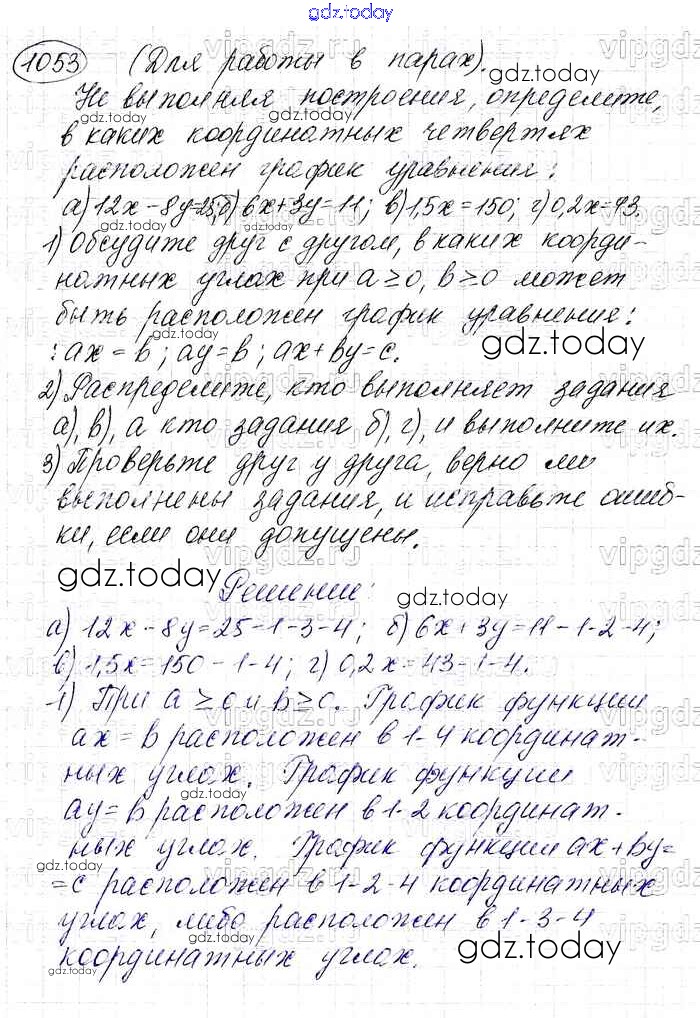 gdz.today
1053 (Для работы в парах).
gdz.today
Не выполняя построения, определите,
в каких координатных четвертях
расположен график уравнения:
а) 12x-8y=25; б) 6x+3y=11; в) 1,5x=150; г) 0,2x=43.
gdz.today
1) Обсудите друг с другом, в каких коорди-
натных углах при a≥0, b≥0 может
gdz.today
быть расположен график уравнения:
: ax = b; ay=b; ax+by=c.
gdz.today
2) Распределите, кто выполняет задания
а), в), а кто задания б), г), и выполните их.
3) Проверьте друг у друга, верно ли
выполнены задания, и исправьте ошиб-
ки, если они допущены.
gdz.today
Решение:
gdz.today
а) 12x-8y=25-1-3-4; б) 6x+3y=11-1-2-4;
в) 1,5x=150-1-4; г) 0,2x=43-1-4.
1) При a ≥0 и b≥0. График функции
ax=b расположен в 1-4 координат-
ных углах. График функции
gdz.today
ay=b расположен в 1-2 координат-
ных углах. График функции ax+by=
gdz.today
=c расположен в 1-2-4 координатных
углах, либо расположен в 1-3-4
gdz.today
координатных углах.
gdz.today